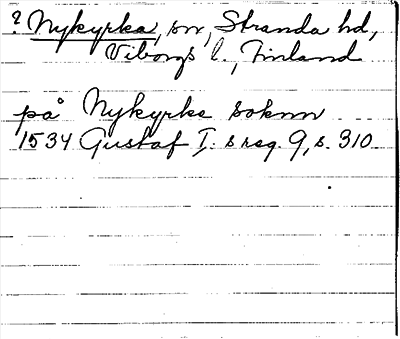 ? Nykyrka, sn, Stranda hd,
Viborgs l., Finland
på Nykyrke soknn
1534 Gustaf I:s reg. 9, s. 310